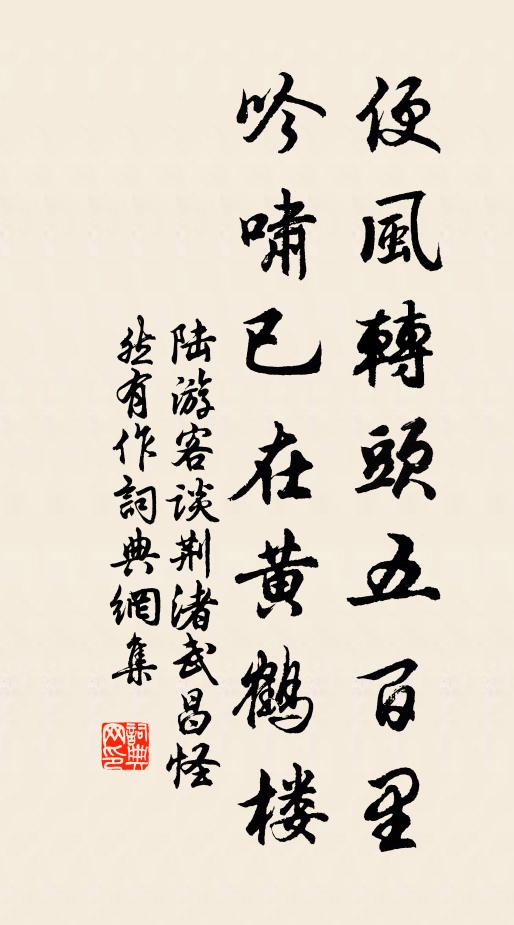 便風轉頭五百里
吟嘯已在黃鶴楼
陆游客谈荆渚武昌怪
然有作詞典網集
詞典
网印